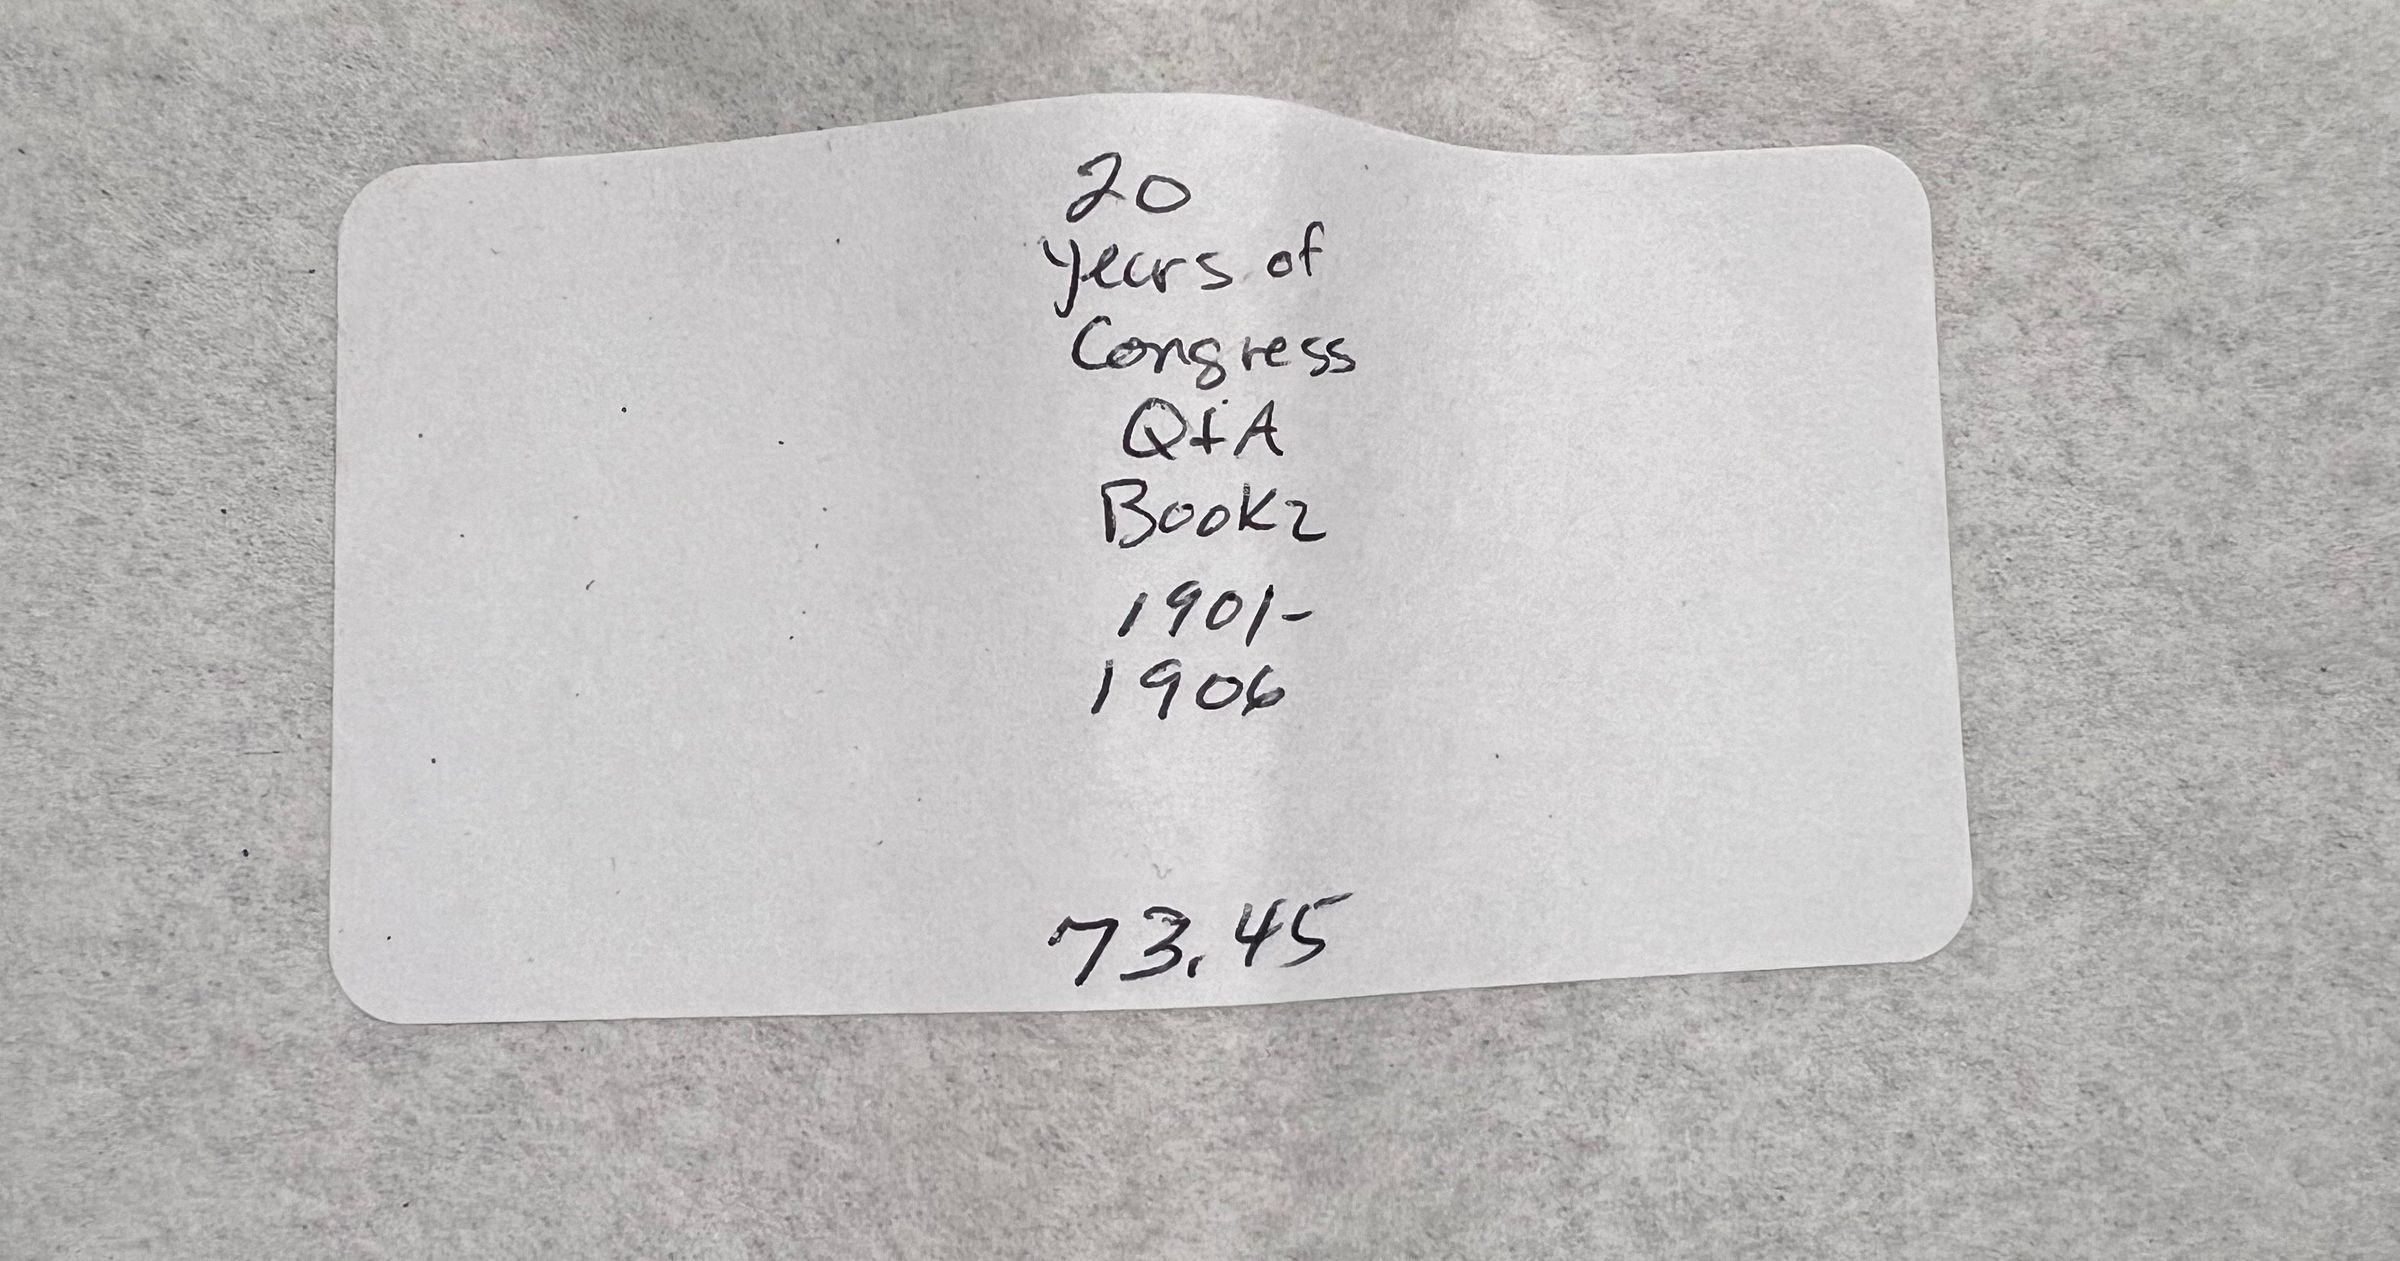 20
years of
Congress
Q+A
Book 2
1901-
1906
73.45